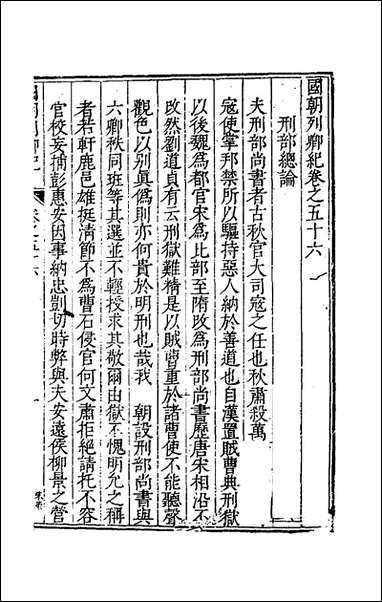 國朝列卿紀卷之五十六
刑部總論
夫刑部尚書者古秋官大司寇之任也秋肅殺萬
寇使掌邦禁所以驅持惡人納於善道也自漢置賊曹典刑獄
以後魏為都官宋為比部至隋改為刑部尚書歷唐宋相沿不
改然劉道貞有云刑獄難精是以賊曹重於諸曹使不能聽聲
觀色以別真偽則亦何貴於明刑也哉我 朝設刑部尚書與
六卿秩同班等其選並不輕授求其敬爾由獄不愧明允之稱
者若軒鹿邑雄挺清節不為曹石侵官何文肅拒絕請托不容
官校妄捕彭惠安因事納忠剴切時弊與夫安遠侯柳景之營